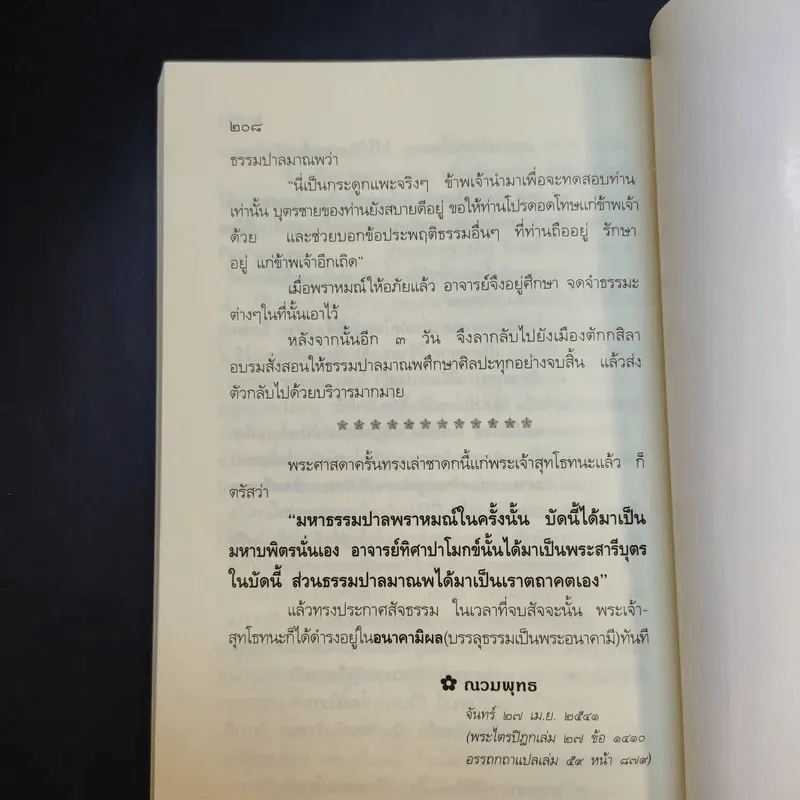 ๒๐๘
ธรรมปาลมาณพว่า
“นี่เป็นกระดูกแพะจริงๆ ข้าพเจ้านำมาเพื่อจะทดสอบท่าน
เท่านั้น บุตรชายของท่านยังสบายดีอยู่ ขอให้ท่านโปรดอดโทษแก่ข้าพเจ้า
ด้วย และช่วยบอกข้อประพฤติธรรมอื่นๆ ที่ท่านถืออยู่ รักษา
อยู่ แก่ข้าพเจ้าอีกเถิด”
เมื่อพราหมณ์ให้อภัยแล้ว อาจารย์จึงอยู่ศึกษา จดจำธรรมะ
ต่างๆในที่นั้นเอาไว้
หลังจากนั้นอีก ๓ วัน จึงลากลับไปยังเมืองตักกสิลา
อบรมสั่งสอนให้ธรรมปาลมาณพศึกษาศิลปะทุกอย่างจบสิ้น แล้วส่ง
ตัวกลับไปด้วยบริวารมากมาย
พระศาสดาครั้นทรงเล่าชาดกนี้แก่พระเจ้าสุทโธทนะแล้ว ก็
ตรัสว่า
“มหาธรรมปาลพราหมณ์ในครั้งนั้น บัดนี้ได้มาเป็น
มหาบพิตรนั่นเอง อาจารย์ทิศาปาโมกข์นั้นได้มาเป็นพระสารีบุตร
ในบัดนี้ ส่วนธรรมปาลมาณพได้มาเป็นเราตถาคตเอง”
แล้วทรงประกาศสัจธรรม ในเวลาที่จบสัจจะนั้น พระเจ้า-
สุทโธทนะก็ได้ดำรงอยู่ในอนาคามิผล(บรรลุธรรมเป็นพระอนาคามี)ทันที
✿ ณวมพุทธ
จันทร์ ๒๗ เม.ย. ๒๕๔๑
(พระไตรปิฎกเล่ม ๒๗ ข้อ ๑๔๑๐
อรรถกถาแปลเล่ม ๕๙ หน้า ๘๗๙)